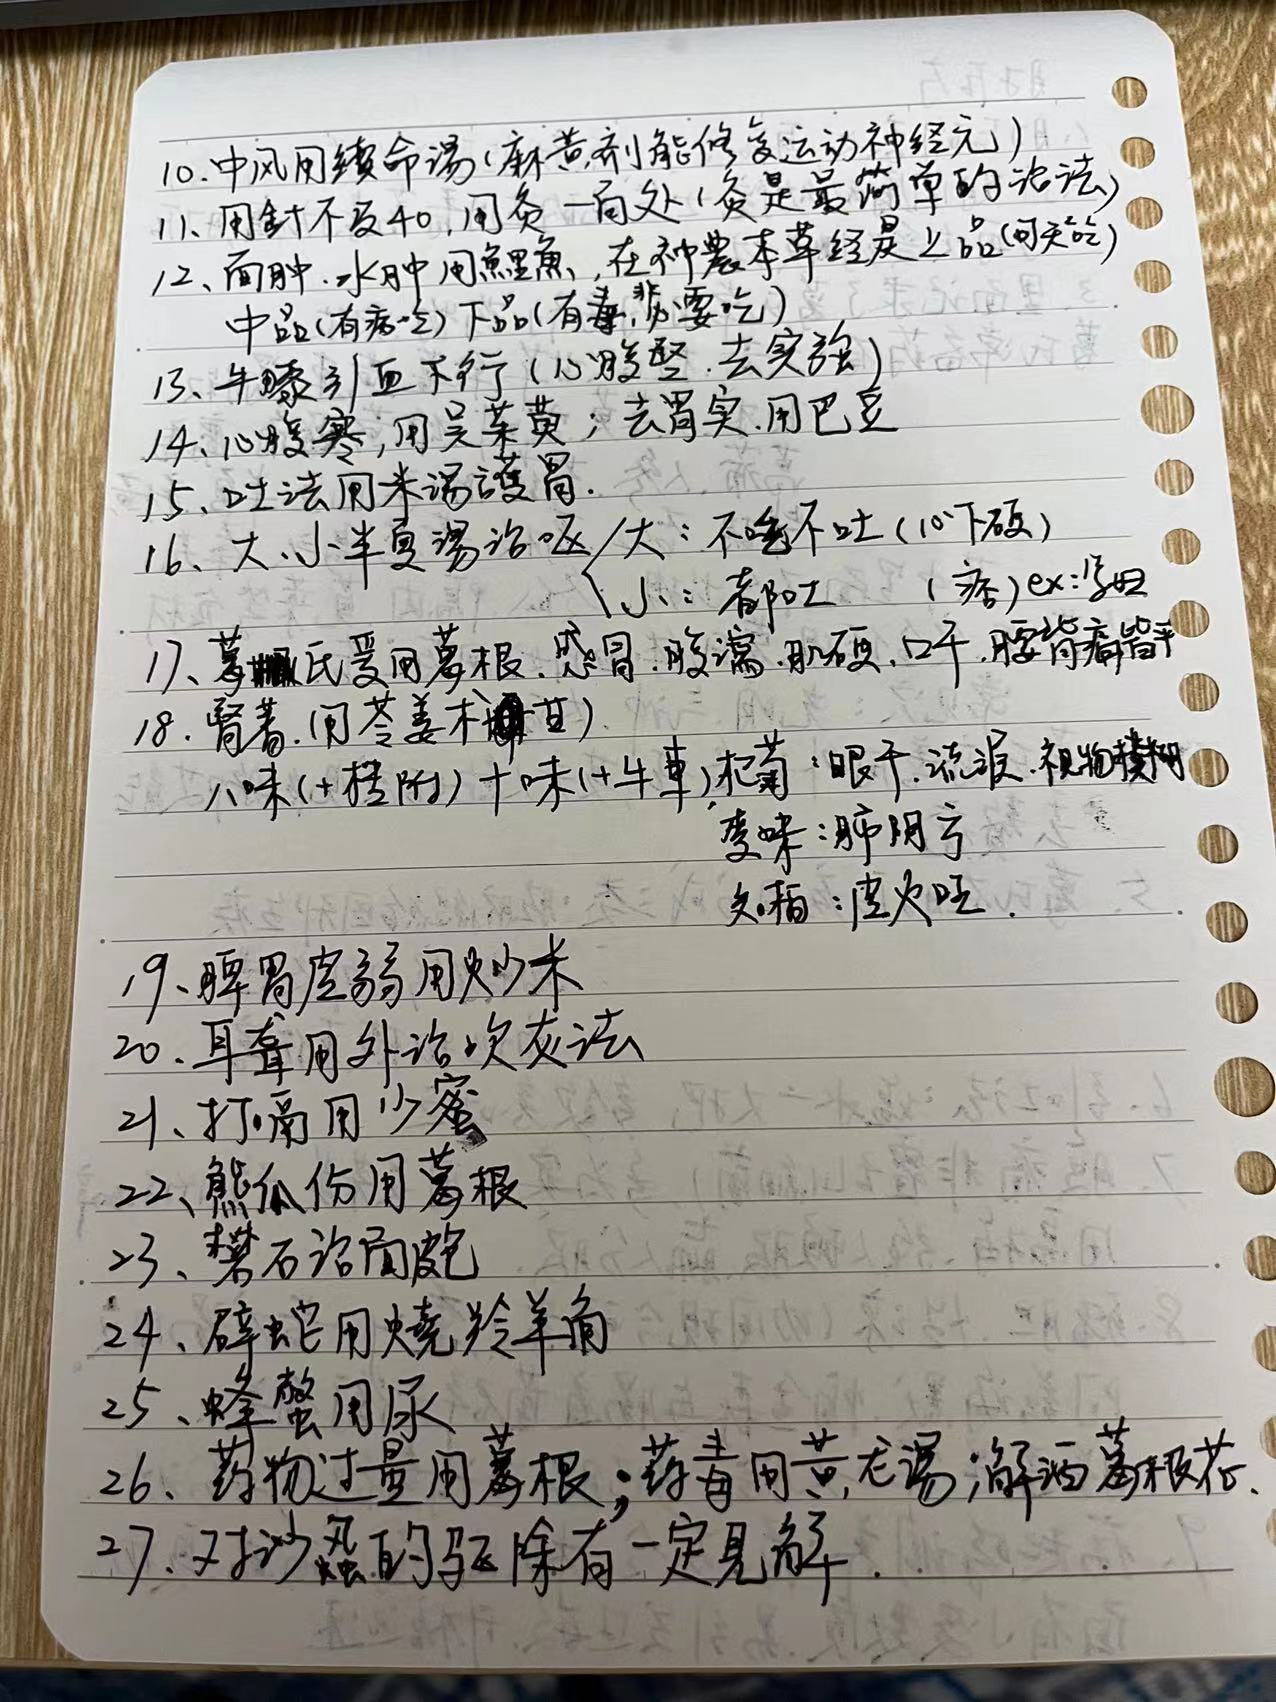 10.中风用续命汤(麻黄剂能修复运动神经元)
11、用針不及40,用灸一百处(灸是最简单的治法)
12、面肿.水肿用鯉魚,在神農本草经是上品(可天吃)
中品(有病吃)下品(有毒,必要吃)
13、牛膝引血下行(心腹坚.去实强)
14、心腹寒,用吴茱萸;去胃实.用巴豆
15、吐法用米湯護胃.
16、大.小半夏湯治呕 大:不吃不吐(心下硬)
小:都吐 (痞)ex:孕妇
17、葛氏爱用葛根.感冒.腹瀉.肌硬.口干.腰背痛皆平
18.腎著.用苓姜术甘)
八味(+桂附)十味(+牛車)杞菊:眼干.流泪.視物模糊
麦味:肺阴亏
知柏:虚火旺.
19、脾胃虚弱用炒米
20.耳聋用外治吹灰法
21、打嗝用少蜜
22、熊爪伤用葛根
23、礬石治面皰
24、辟蛇用燒羚羊角
25、蜂螫用尿
26、药物过量用葛根;药毒用黄龙湯;解酒葛根花.
27、对沙蝨的驱除有一定見解.